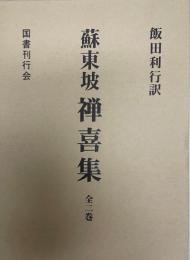 飯田利行訳
蘇東坡禅喜集 全二巻
国書刊行会